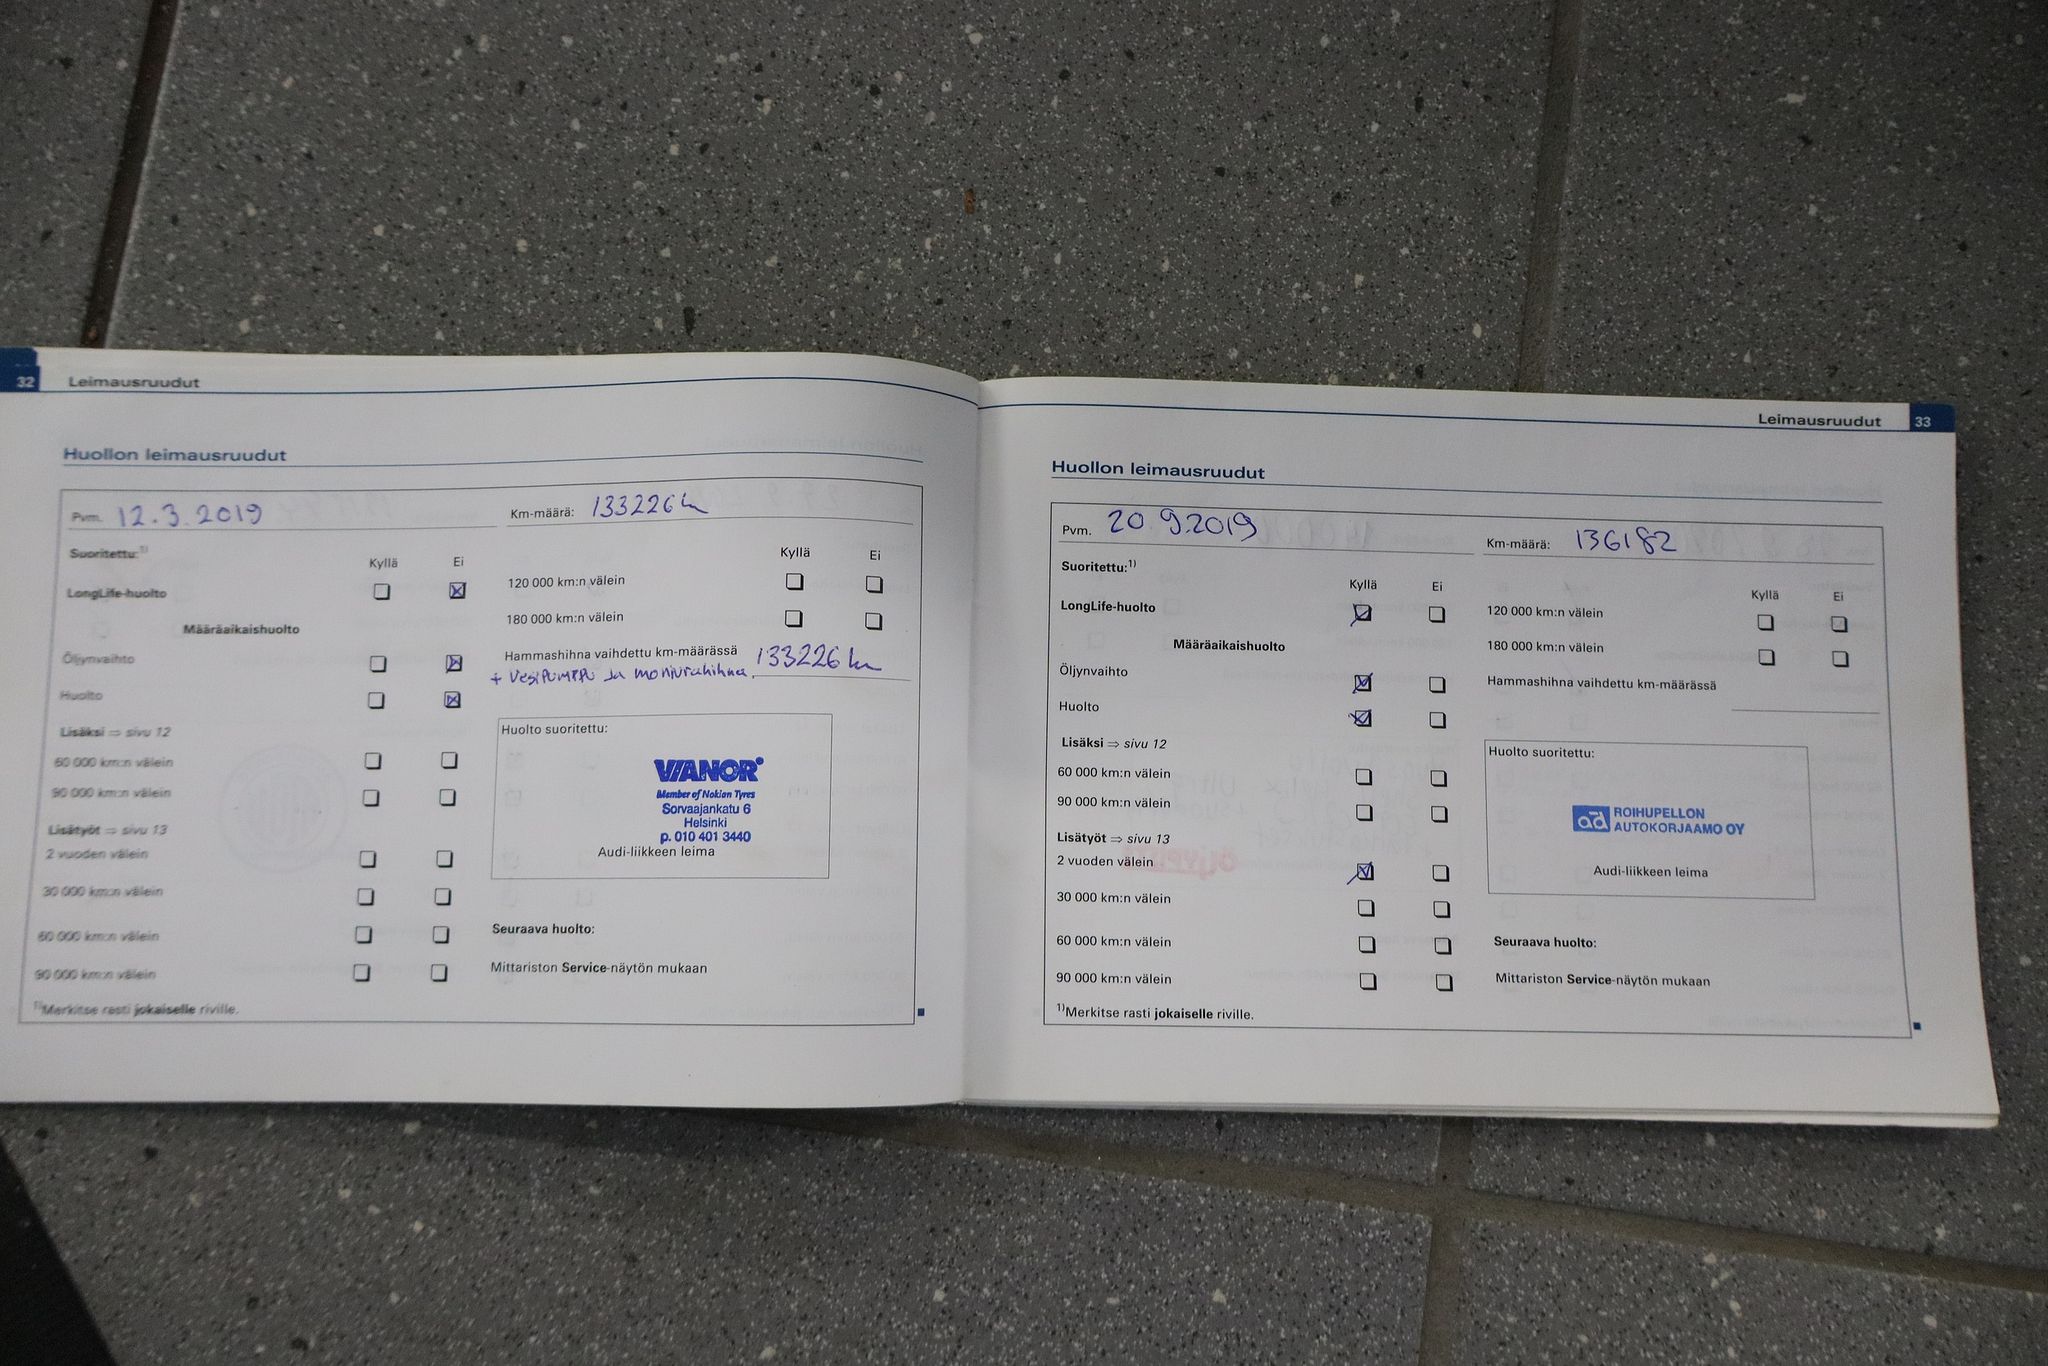 32 Leimausruudut
Huollon leimausruudut
Pvm. 12.3.2019 Km-määrä: 133226 km
Suoritettu:1) Kyllä Ei Kyllä Ei
LongLife-huolto ☐ ☒ 120 000 km:n välein ☐ ☐
Määräaikaishuolto 180 000 km:n välein ☐ ☐
Öljynvaihto ☐ ☒ Hammashihna vaihdettu km-määrässä 133226 km
+ vesipumppu ja moniurahihna.
Huolto ☐ ☒
Lisäksi ⇒ sivu 12
60 000 km:n välein ☐ ☐
90 000 km:n välein ☐ ☐
Lisätyöt ⇒ sivu 13
2 vuoden välein ☐ ☐
30 000 km:n välein ☐ ☐
60 000 km:n välein ☐ ☐
90 000 km:n välein ☐ ☐
1)Merkitse rasti jokaiselle riville.
Huolto suoritettu:
VIANOR
Member of Nokian Tyres
Sorvaajankatu 6
Helsinki
p. 010 401 3440
Audi-liikkeen leima
Seuraava huolto:
Mittariston Service-näytön mukaan
Leimausruudut 33
Huollon leimausruudut
Pvm. 20.9.2019 Km-määrä: 136182
Suoritettu:1) Kyllä Ei Kyllä Ei
LongLife-huolto ☒ ☐ 120 000 km:n välein ☐ ☐
Määräaikaishuolto 180 000 km:n välein ☐ ☐
Öljynvaihto ☒ ☐ Hammashihna vaihdettu km-määrässä
Huolto ☒ ☐
Lisäksi ⇒ sivu 12
60 000 km:n välein ☐ ☐
90 000 km:n välein ☐ ☐
Lisätyöt ⇒ sivu 13
2 vuoden välein ☒ ☐
30 000 km:n välein ☐ ☐
60 000 km:n välein ☐ ☐
90 000 km:n välein ☐ ☐
1)Merkitse rasti jokaiselle riville.
Huolto suoritettu:
ad ROIHUPELLON
AUTOKORJAAMO OY
Audi-liikkeen leima
Seuraava huolto:
Mittariston Service-näytön mukaan